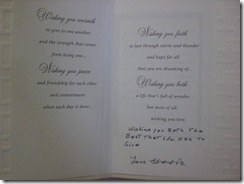 Wishing you warmth
to give to one another
and the strength that comes
from being one...
Wishing you peace
and friendship for each other
and contentment
when each day is done...
Wishing you faith
to last through storm and thunder
and hope for all
that you are dreaming of...
Wishing you both
a life that's full of wonder,
but most of all,
wishing you love.
Wishing you Both The
Best That Life Has To
Give
Love